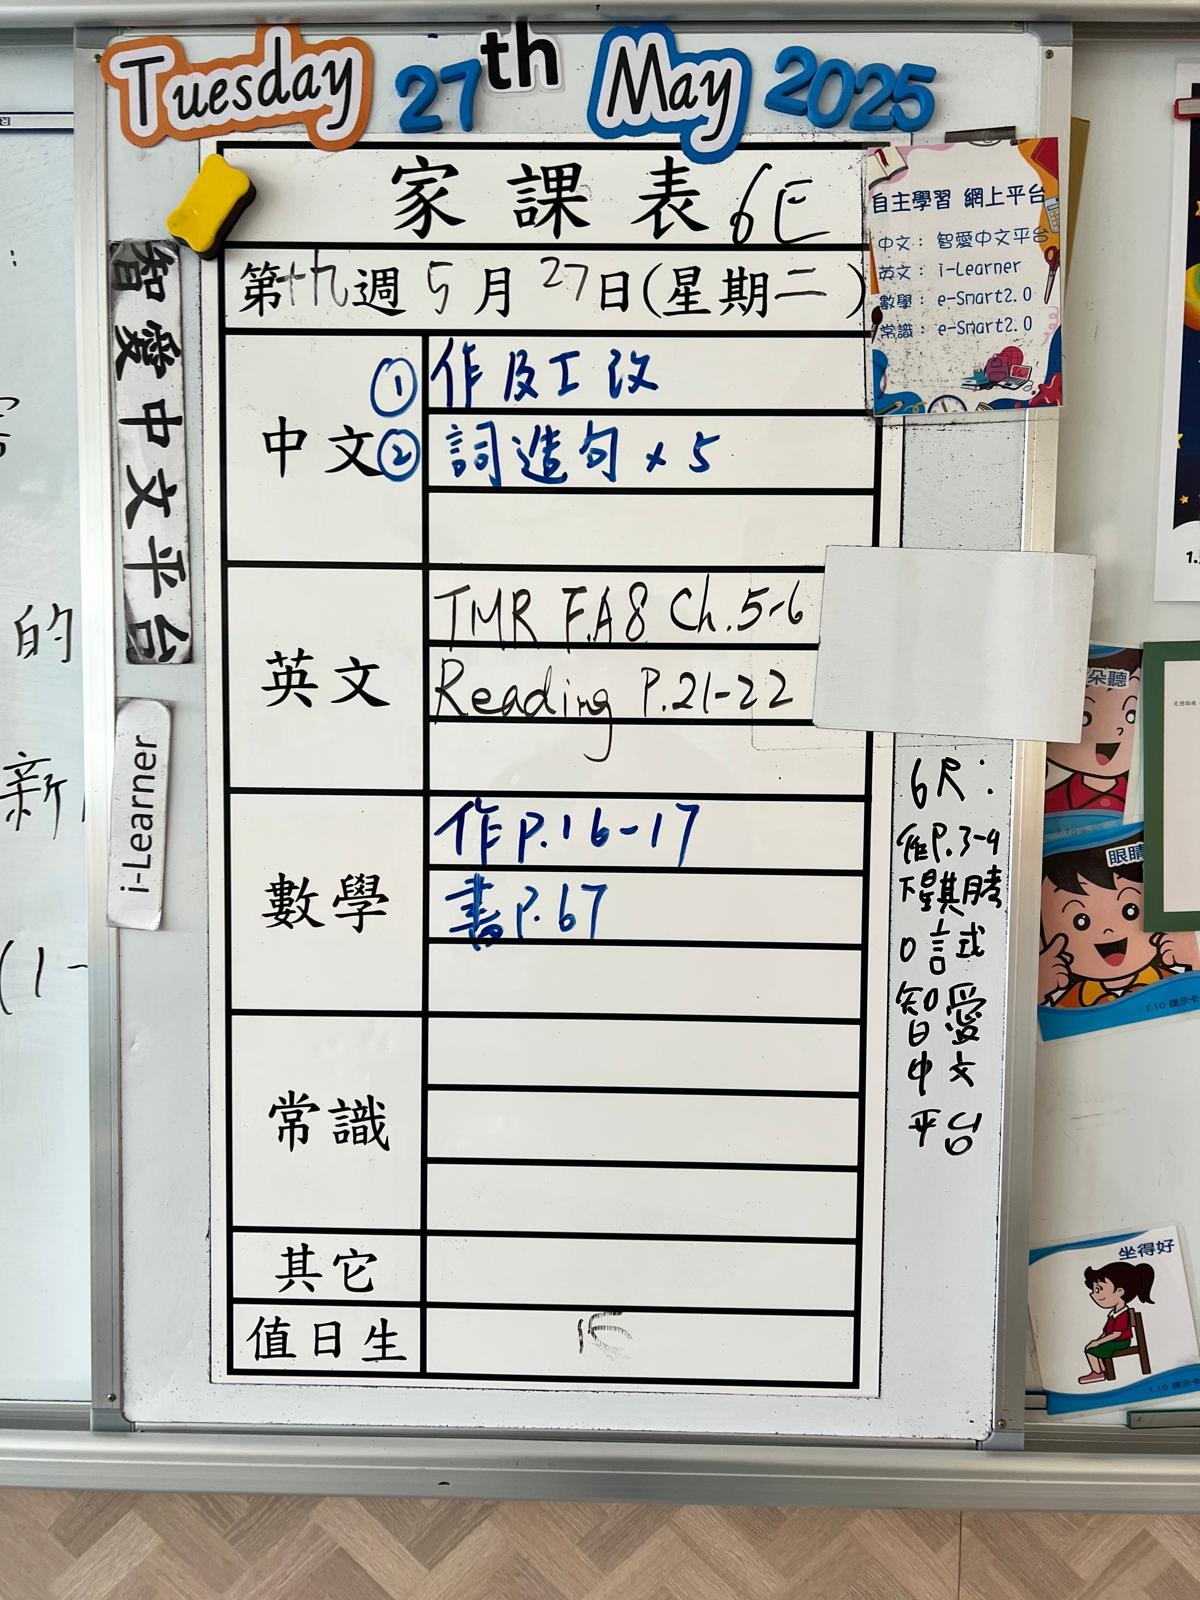 Tuesday 27th May 2025
家課表 6E
第十九週 5月27日(星期二)
自主學習 網上平台
中文：智愛中文平台
英文：i-Learner
數學：e-Smart2.0
常識：e-Smart2.0
智愛中文平台
i-Learner
中文
① 作及工改
② 詞造句 x 5
英文
TMR F.A8 Ch.5-6
Reading P.21-22
數學
作P.16-17
書P.67
常識
其它
值日生
6R:
作P.3-4
下星期考
口試
智愛
中文
平台
的
新
(1-
朵聽
眼睛
1.10 提示卡
坐得好
1.10 提示卡
1.